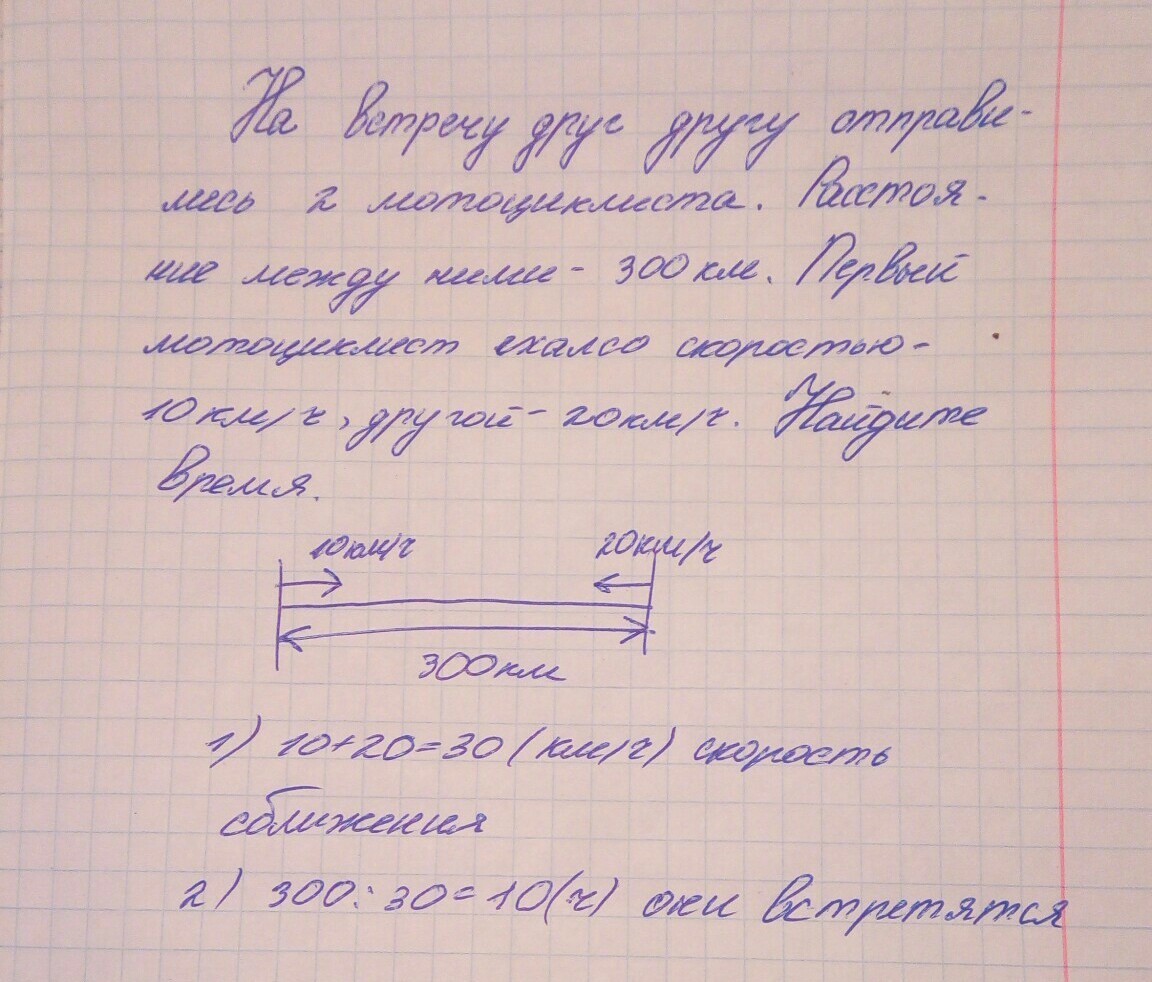 На встречу друг другу отправи-
лись 2 мотоциклиста. Расстоя-
ние между ними - 300 км. Первый
мотоциклист ехалсо скоростью-
10 км/ч, другой - 20км/ч. Найдите
время.
10км/ч 20км/ч
300км
1) 10+20=30 (км/ч) скорость
сближения
2) 300:30=10(ч) они встретятся